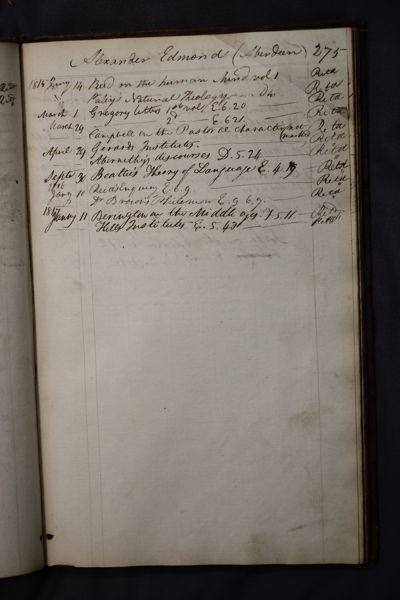 Alexander Edmond (Aberdeen) 275
1815 Jany 14 Reid on the human Mind vol 1 Retd
Paley's Natural Theology Do Retd
March 1 Gregory 1st vol. E.6.20 Retd
2d E.6.21 Retd
March 29 Campbell on the Pastoral character (not marked) Retd
April 29 Gerard's Institutes. Retd
Abernethy's discourses D.5.24 Retd
Septr Beattie's Theory of Language E.4.19 Retd
1816 Jany 10 E.6.9 Retd
Dr Brown's Philemon E.g 6.7. Retd
1817 Jany 11 Berington on the Middle ages I.5.11 Retd
Hill's Institutes E.5.43 Retd